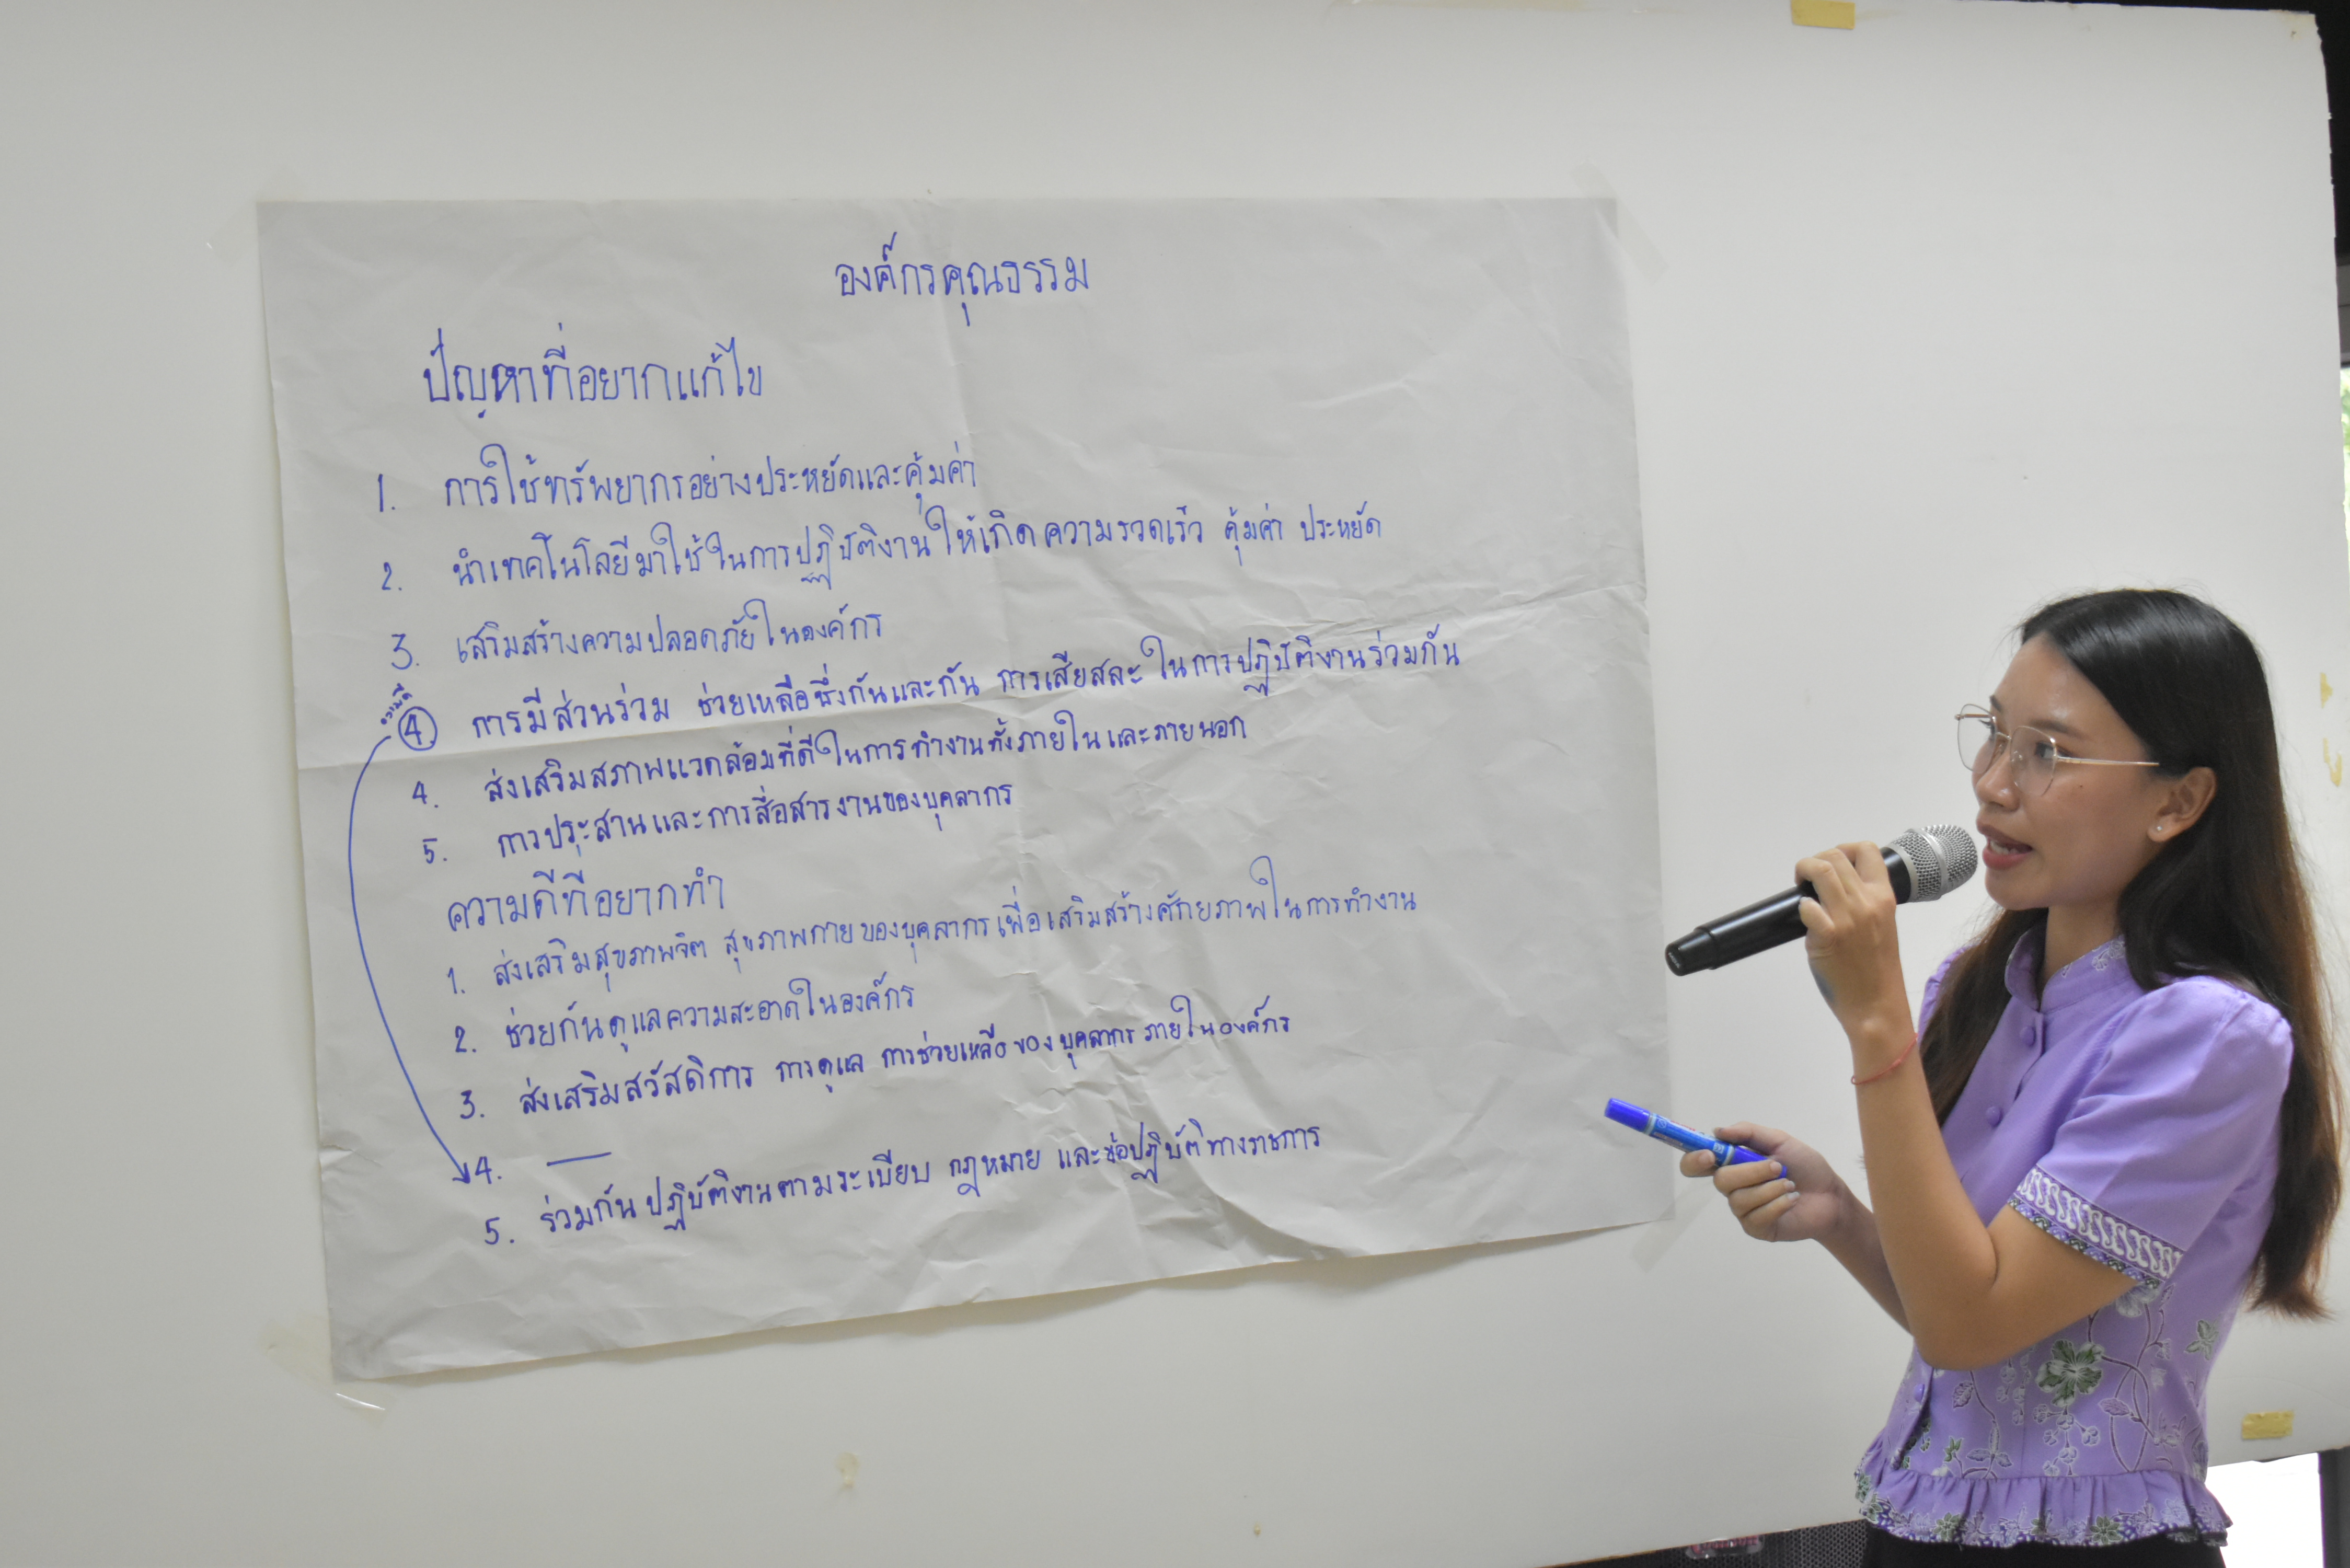 องค์กรคุณธรรม
ปัญหาที่อยากแก้ไข
1. การใช้ทรัพยากรอย่างประหยัดและคุ้มค่า
2. นำเทคโนโลยีมาใช้ในการปฏิบัติงานให้เกิดความรวดเร็ว คุ้มค่า ประหยัด
3. เสริมสร้างความปลอดภัยในองค์กร
4 การมีส่วนร่วม ช่วยเหลือซึ่งกันและกัน การเสียสละในการปฏิบัติงานร่วมกัน
4. ส่งเสริมสภาพแวดล้อมที่ดีในการทำงานทั้งภายในและภายนอก
5. การประสานและการสื่อสารงานของบุคลากร
ความดีที่อยากทำ
1. ส่งเสริมสุขภาพจิต สุขภาพกายของบุคลากรเพื่อเสริมสร้างศักยภาพในการทำงาน
2. ช่วยกันดูแลความสะอาดในองค์กร
3. ส่งเสริมสวัสดิการ การดูแล การช่วยเหลือของบุคลากรภายในองค์กร
4. —
5. ร่วมกันปฏิบัติงานตามระเบียบ กฎหมาย และข้อปฏิบัติทางราชการ